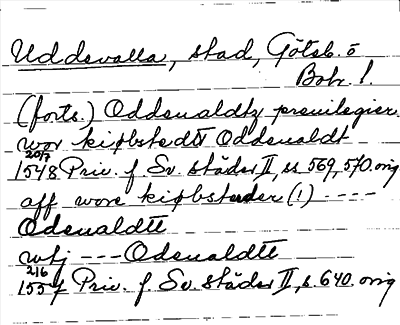 Uddevalla, stad, Göteb. o
Boh. l.
(forts.) Oddeualdtz preuilegier.
wor kiøbstedtt Oddeualdt
20/7
1548 Priv. f Sv. städer II, s 569, 570. orig
aff wore kiøbsteder (!) ----
Odeualdtt
wtj --- Odeualdtt
2/6
1557 Priv. f Sv. städer II, s. 640. orig